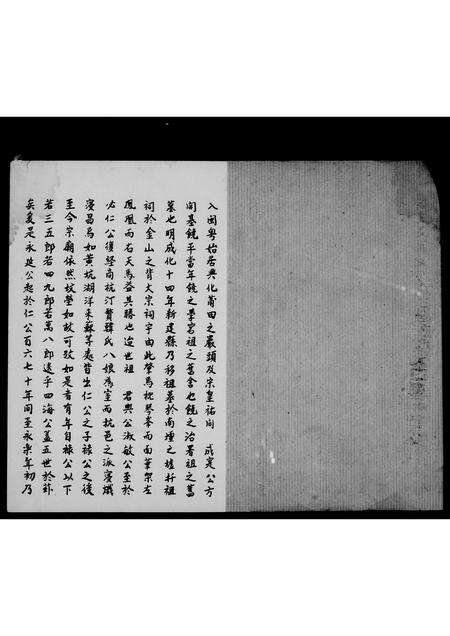 入閩粤始居興化莆田之巖頭及宋皇祐間　成寔公方
開基饒平當年饒之學宮祖之舊舍也饒之治署祖之舊
墓也明成化十四年新建縣乃移祖墓於南壇之墟杆祖
祠於金山之背大宗祠宇由此肇焉枕琴峯而面筆架左
鳳凰而右天馬益其勝也迨世祖　君與公淑敏公至於
屺仁公復經商杭汀贅韓氏八娘為室而杭邑之派寖熾
寖昌焉如黃坑湖洋来蘇等處皆出仁公之子祿公之後
至今宗廟依然坟塋如故可攷如是者有年自祿公以下
若三五郎若四九郎若萬八郎遠乎四海公蓋五世於邦
矣夏是永延公起於仁公百六七十年間至永樂年初乃